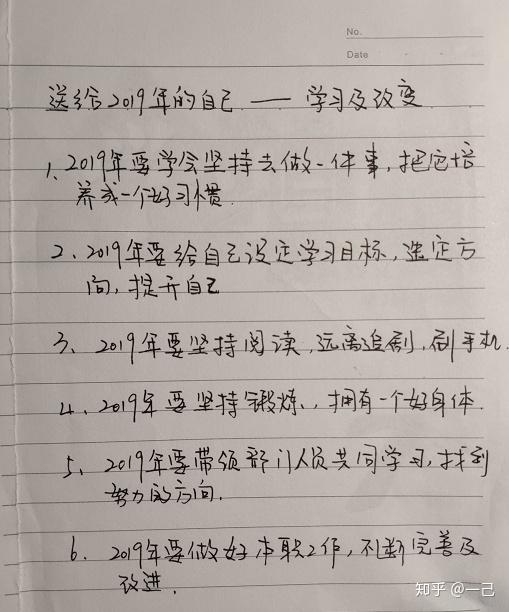 No.
Date
送给2019年的自己 —— 学习及改变
1、2019年要学会坚持去做一件事,把它培
养成一个好习惯.
2、2019年要给自己设定学习目标,选定方
向,提升自己
3、2019年要坚持阅读,远离追剧,刷手机.
4、2019年要坚持锻炼,拥有一个好身体.
5、2019年要带领部门人员共同学习,找到
努力的方向.
6、2019年要做好本职工作,不断完善及
改进.
知乎 @一己